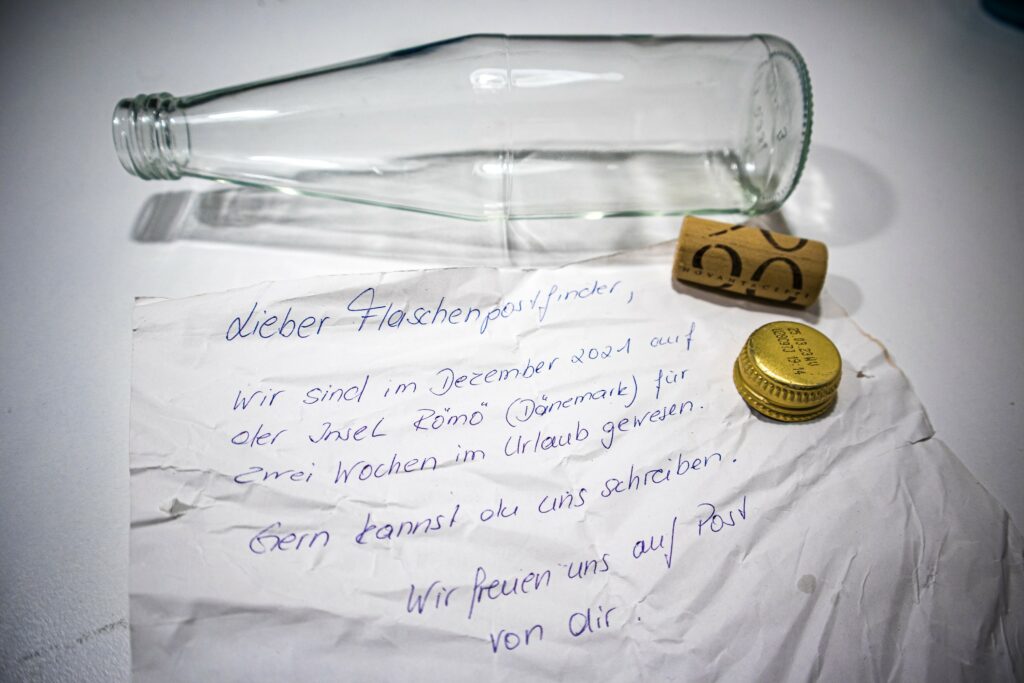 NOVANTACEPPI
25.03.23WU
Lieber Flaschenpostfinder,
wir sind im Dezember 2021 auf
der Insel Römö (Dänemark) für
zwei Wochen im Urlaub gewesen.
Gern kannst du uns schreiben.
Wir freuen uns auf Post
von dir.